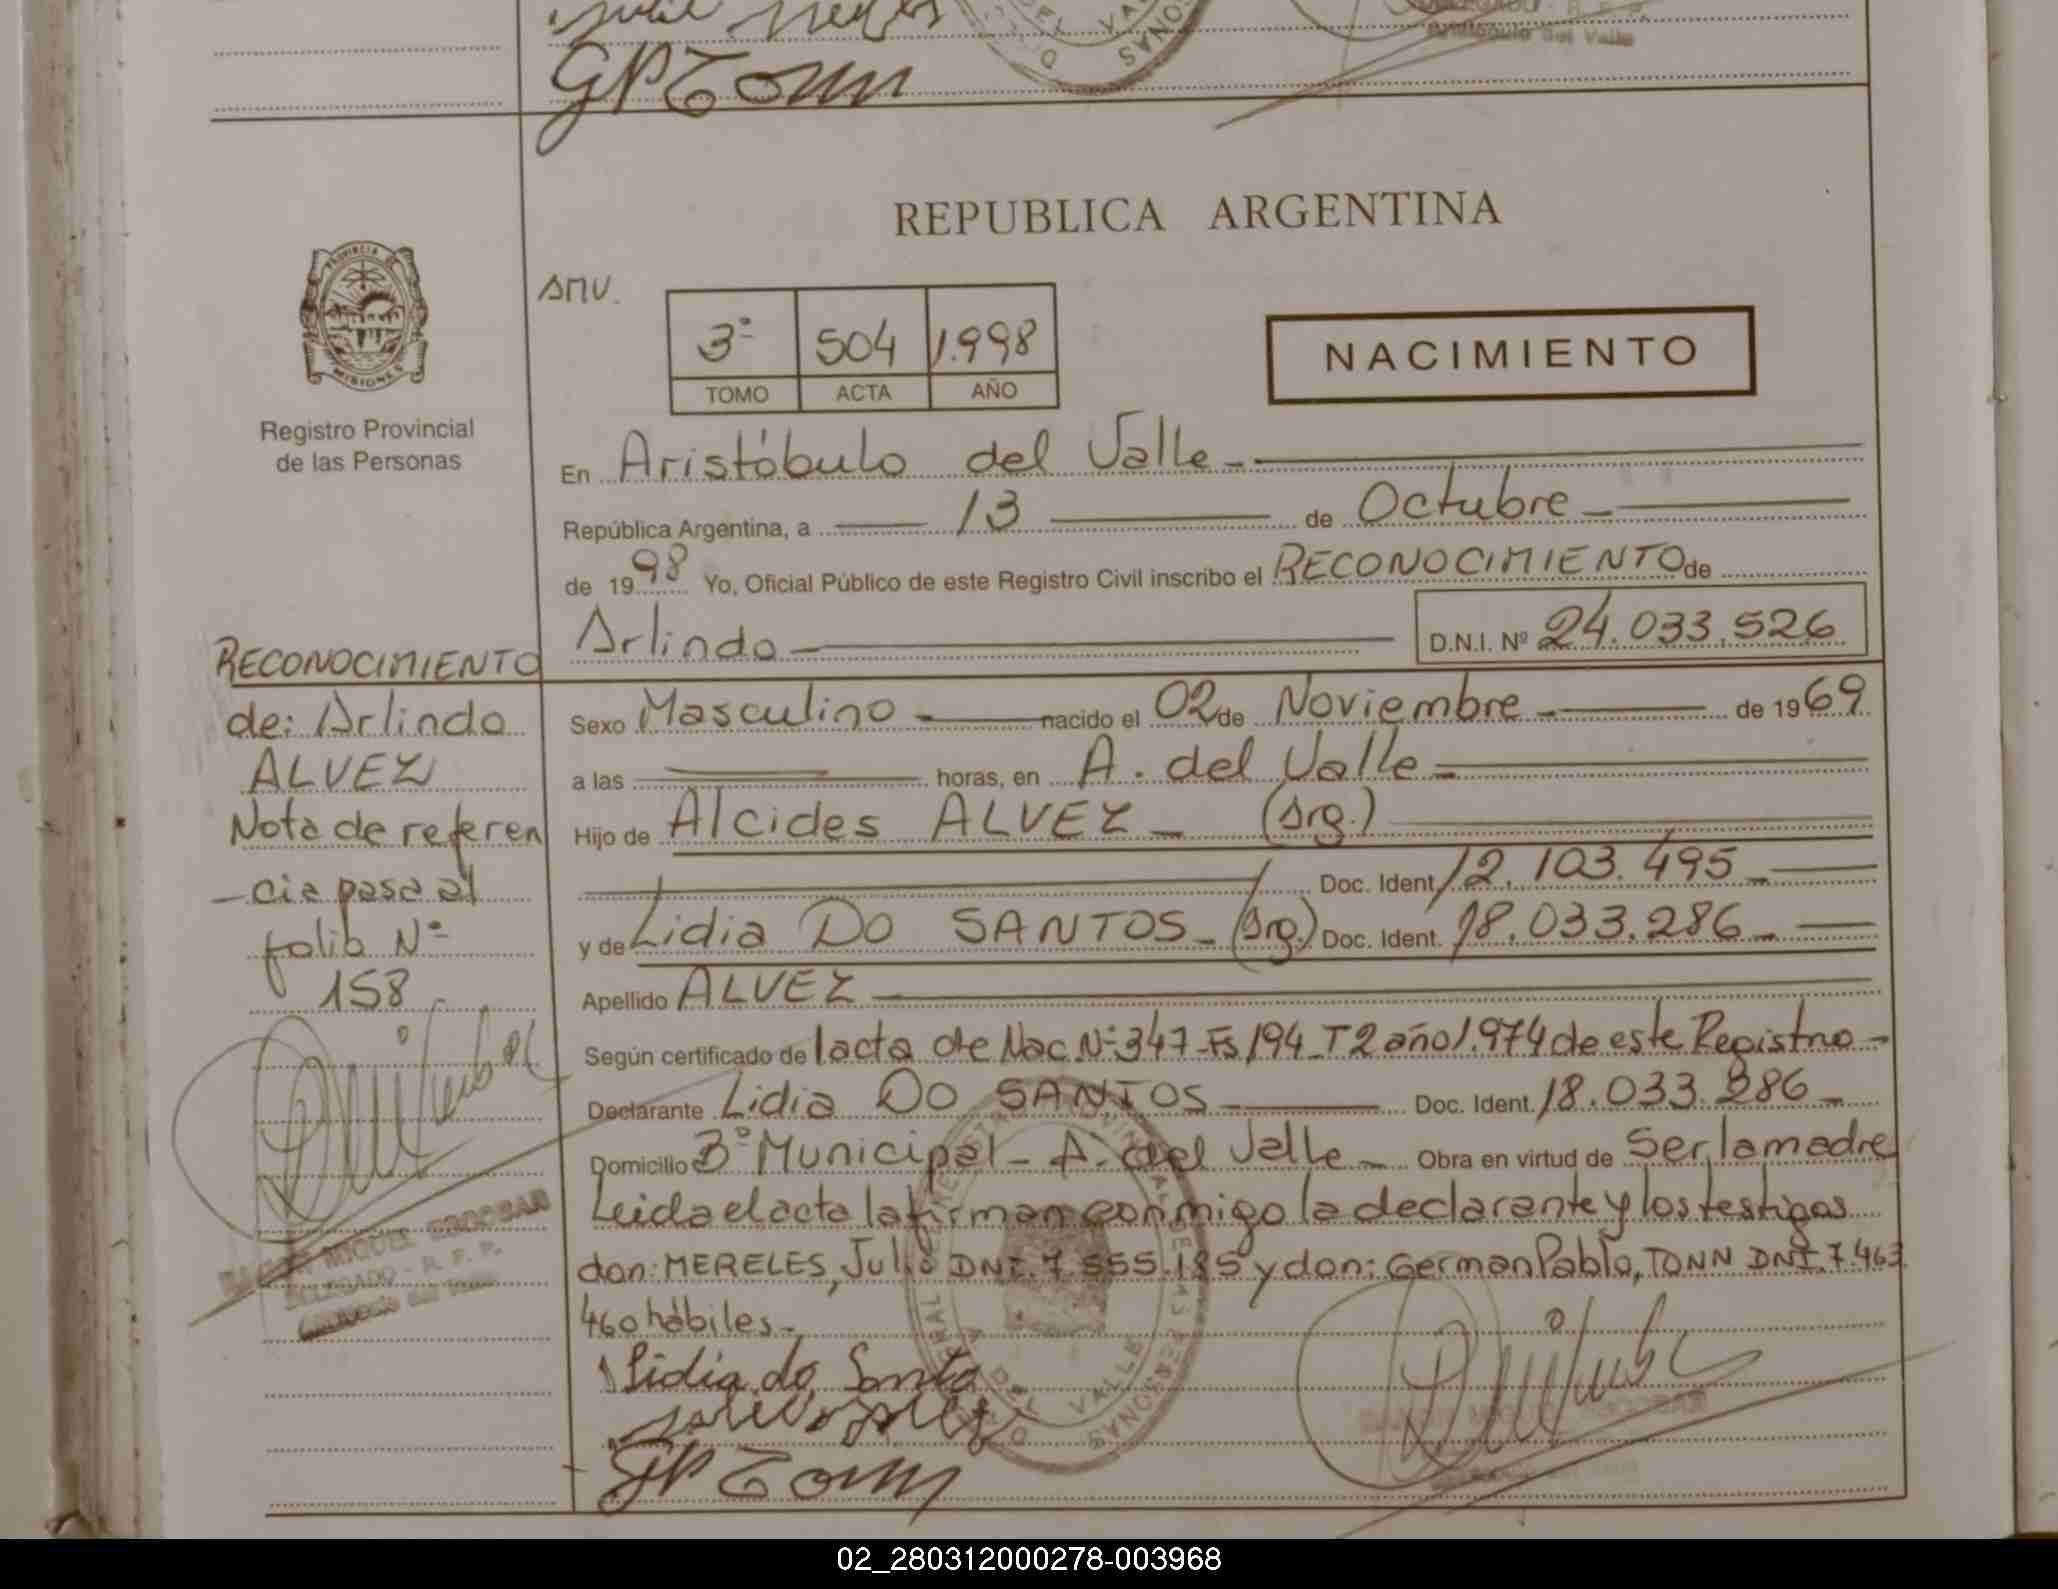 GPTonn
Aristóbulo del Valle
REPUBLICA ARGENTINA
PROVINCIA DE
MISIONES
Registro Provincial
de las Personas
3º 504 1.998
TOMO ACTA AÑO
NACIMIENTO
En Aristóbulo del Valle
República Argentina, a 13 de Octubre
de 1998 Yo, Oficial Público de este Registro Civil inscribo el RECONOCIMIENTO de
Arlindo D.N.I. Nº 24.033.526
RECONOCIMIENTO
de: Arlindo
ALVEZ
Nota de referen
-cia pasa al
folio Nº
158.-
Sexo Masculino nacido el 02 de Noviembre de 1969
a las horas, en A. del Valle
Hijo de Alcides ALVEZ (Arg.)
Doc. Ident. 12.103.495
y de Lidia DO SANTOS (Arg.) Doc. Ident. 18.033.286
Apellido ALVEZ
Según certificado de lacta de Nac. Nº 347-Fs 194-T2 año 1.974 de este Registro-
Declarante Lidia DO SANTOS Doc. Ident. 18.033.286
Domicilio Bº Municipal - A. del Valle Obra en virtud de Ser la madre
Leida el acta la firman conmigo la declarante y los testigos
don: MERELES, Julio DNI. 7.555.185 y don: German Pablo, TONN DNI. 7.463.
460 hábiles.-
MIGUEL ESCOBAR
DELEGADO - R. P. P.
Lidia do Santo
GPTonn
DEL VALLE
02_280312000278-003968